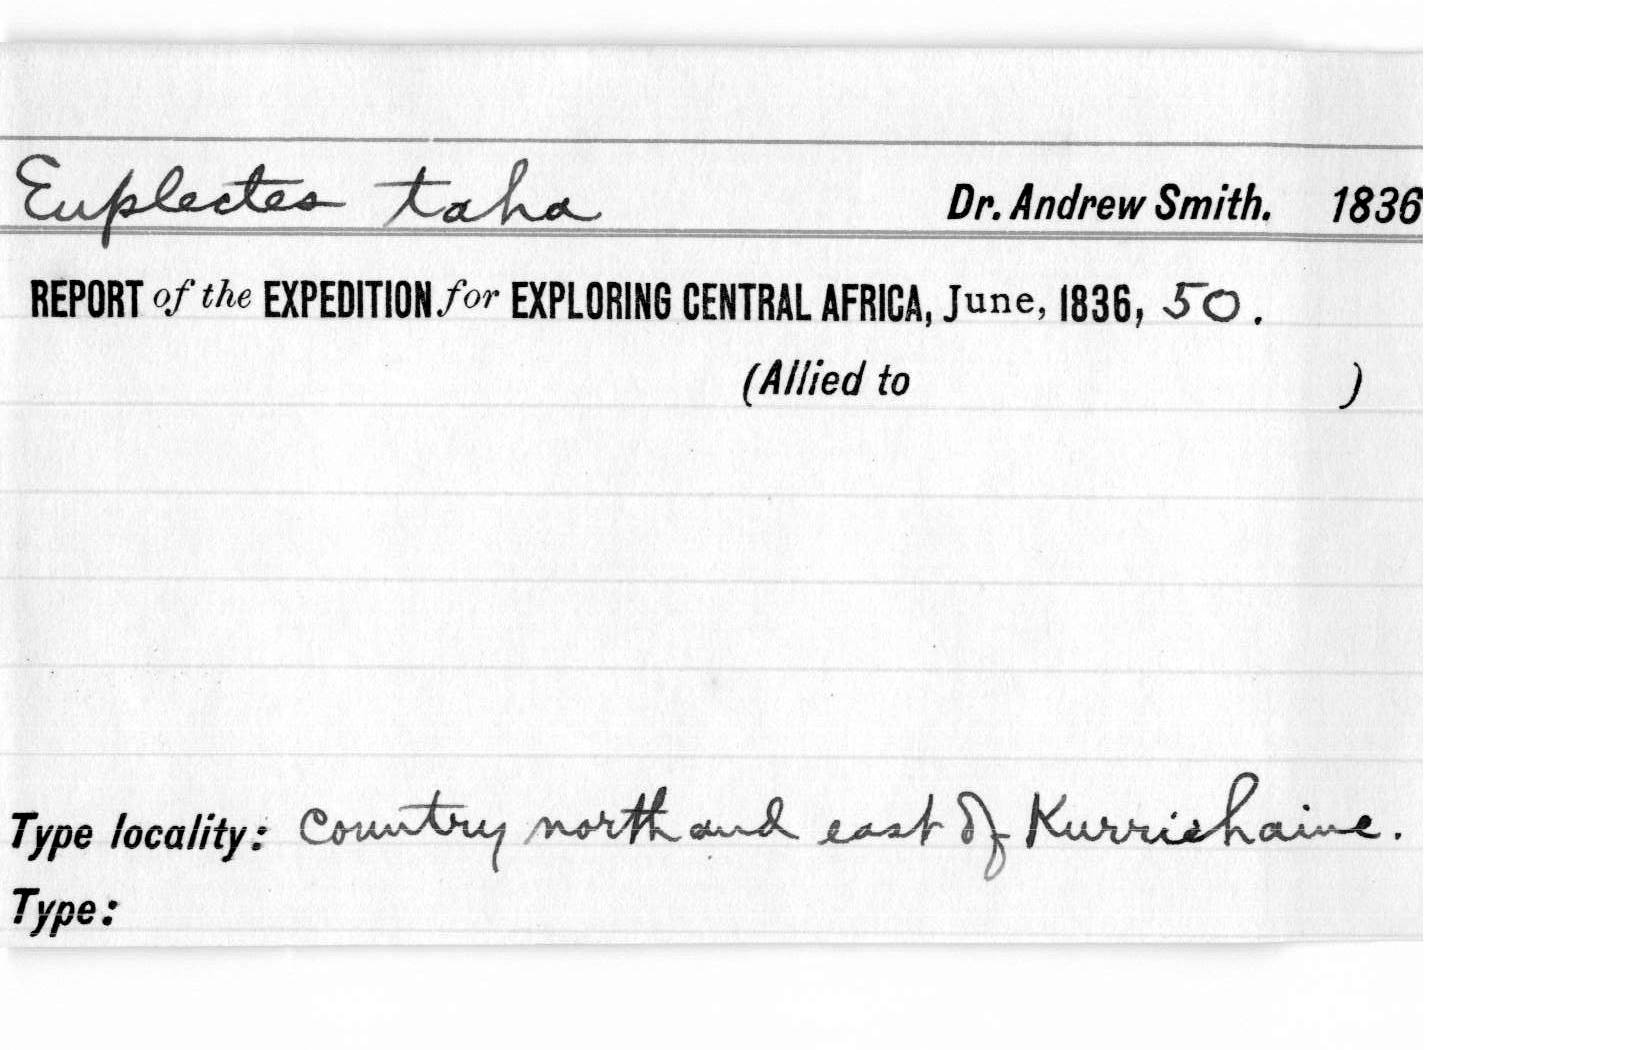 Euplectes taha Dr. Andrew Smith. 1836
REPORT of the EXPEDITION for EXPLORING CENTRAL AFRICA, June, 1836, 50.
(Allied to )
Type locality: Country north and east of Kurrichaine.
Type: